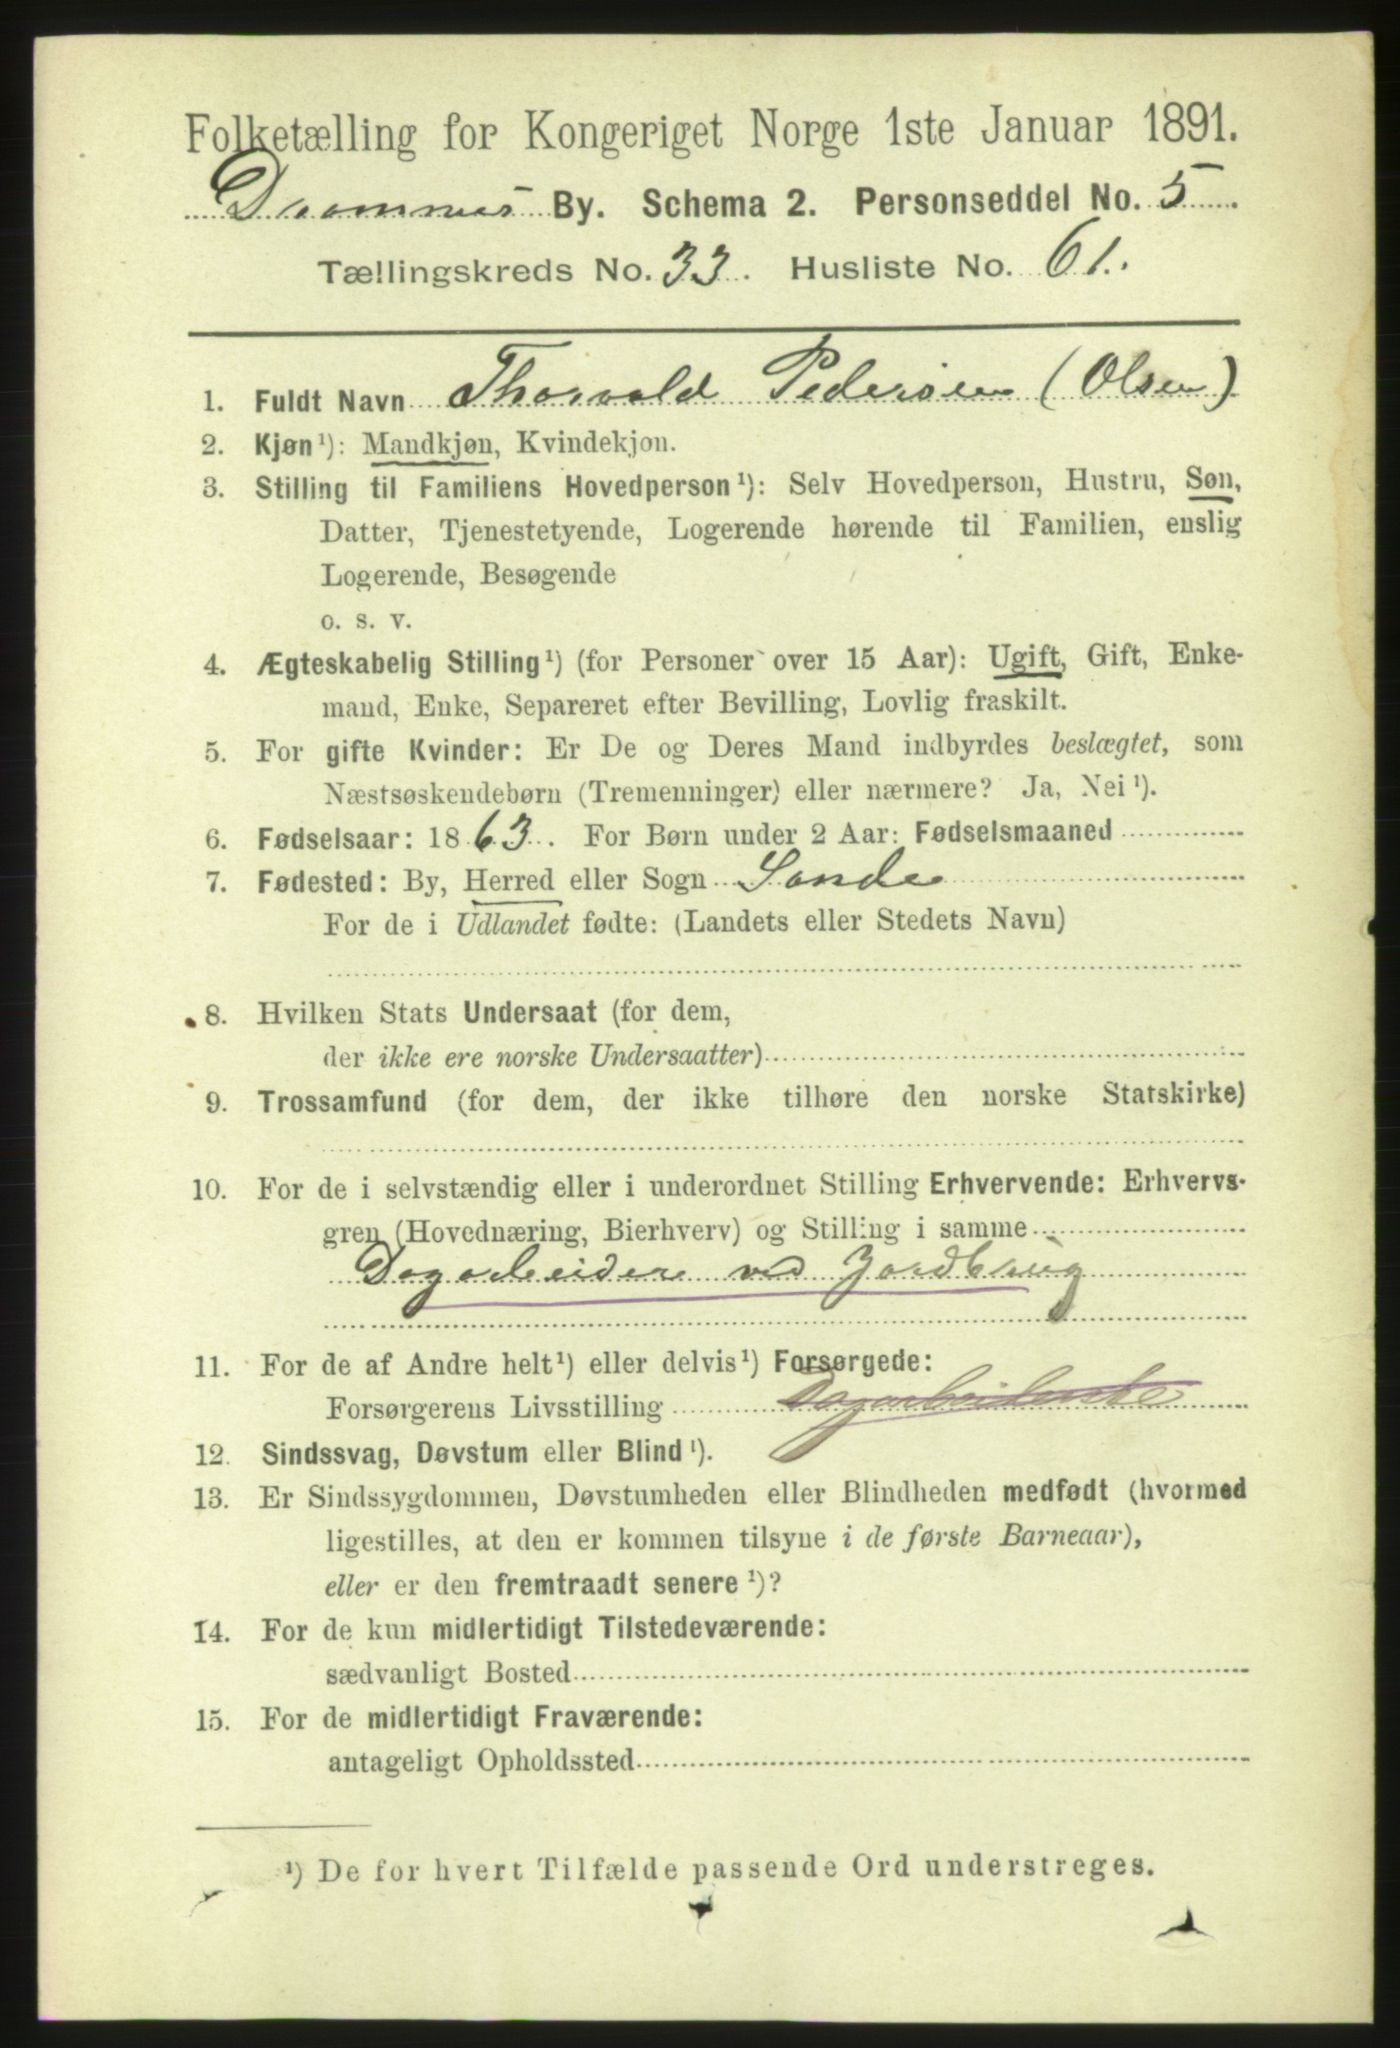 Folketælling for Kongeriget Norge 1ste Januar 1891.
Drammens By. Schema 2. Personseddel No. 5
Tællingskreds No. 33. Husliste No. 61.
1. Fuldt Navn Thorvald Pedersen (Olsen)
2. Kjøn¹): Mandkjøn, Kvindekjøn.
3. Stilling til Familiens Hovedperson¹): Selv Hovedperson, Hustru, Søn,
Datter, Tjenestetyende, Logerende hørende til Familien, enslig
Logerende, Besøgende
o. s. v.
4. Ægteskabelig Stilling¹) (for Personer over 15 Aar): Ugift, Gift, Enke-
mand, Enke, Separeret efter Bevilling, Lovlig fraskilt.
5. For gifte Kvinder: Er De og Deres Mand indbyrdes beslægtet, som
Næstsøskendebørn (Tremenninger) eller nærmere? Ja, Nei¹).
6. Fødselsaar: 1863. For Børn under 2 Aar: Fødselsmaaned
7. Fødested: By, Herred eller Sogn Sande
For de i Udlandet fødte: (Landets eller Stedets Navn)
8. Hvilken Stats Undersaat (for dem,
der ikke ere norske Undersaatter)
9. Trossamfund (for dem, der ikke tilhøre den norske Statskirke)
10. For de i selvstændig eller i underordnet Stilling Erhvervende: Erhvervs-
gren (Hovednæring, Bierhverv) og Stilling i samme
Dagarbeider ved Jordbrug
11. For de af Andre helt¹) eller delvis¹) Forsørgede:
Forsørgerens Livsstilling
12. Sindssvag, Døvstum eller Blind¹).
13. Er Sindssygdommen, Døvstumheden eller Blindheden medfødt (hvormed
ligestilles, at den er kommen tilsyne i de første Barneaar),
eller er den fremtraadt senere¹)?
14. For de kun midlertidigt Tilstedeværende:
sædvanligt Bosted
15. For de midlertidigt Fraværende:
antageligt Opholdssted
¹) De for hvert Tilfælde passende Ord understreges.